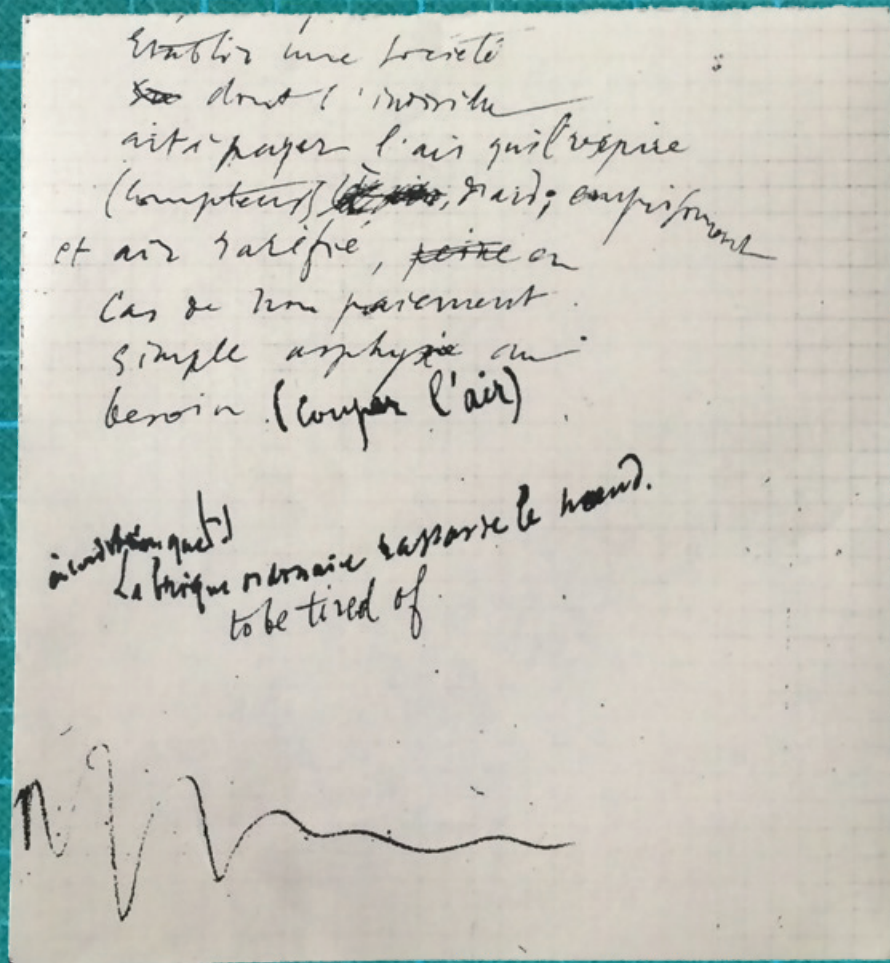 Etablir une société
dont l'individu
ait à payer l'air qu'il respire
(compteurs) d'air; emprisonnement
et air raréfié, peine en
Cas de non paiement.
simple asphyxie au
besoin (couper l'air)
à condition que(?)
La brique ordinaire rassasie le nœud.
to be tired of